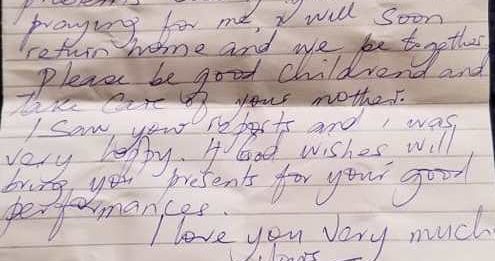 praying for me, I will soon
return home and we be together
Please be good childrend and
Take care of your mother.
I saw your reports and i was
very happy. If God wishes will
bring you presents for your good
performances.
I love you very much